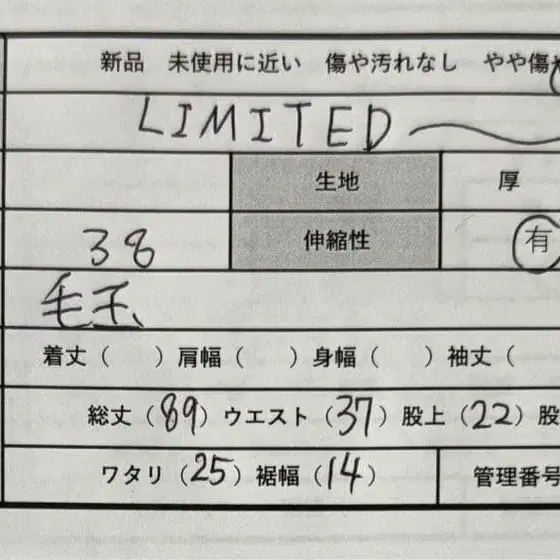 新品 未使用に近い 傷や汚れなし やや傷
LIMITED
生地 厚
38 伸縮性 有
毛玉
着丈( ) 肩幅( ) 身幅( ) 袖丈(
総丈(89) ウエスト(37) 股上(22) 股
ワタリ(25) 裾幅(14) 管理番号